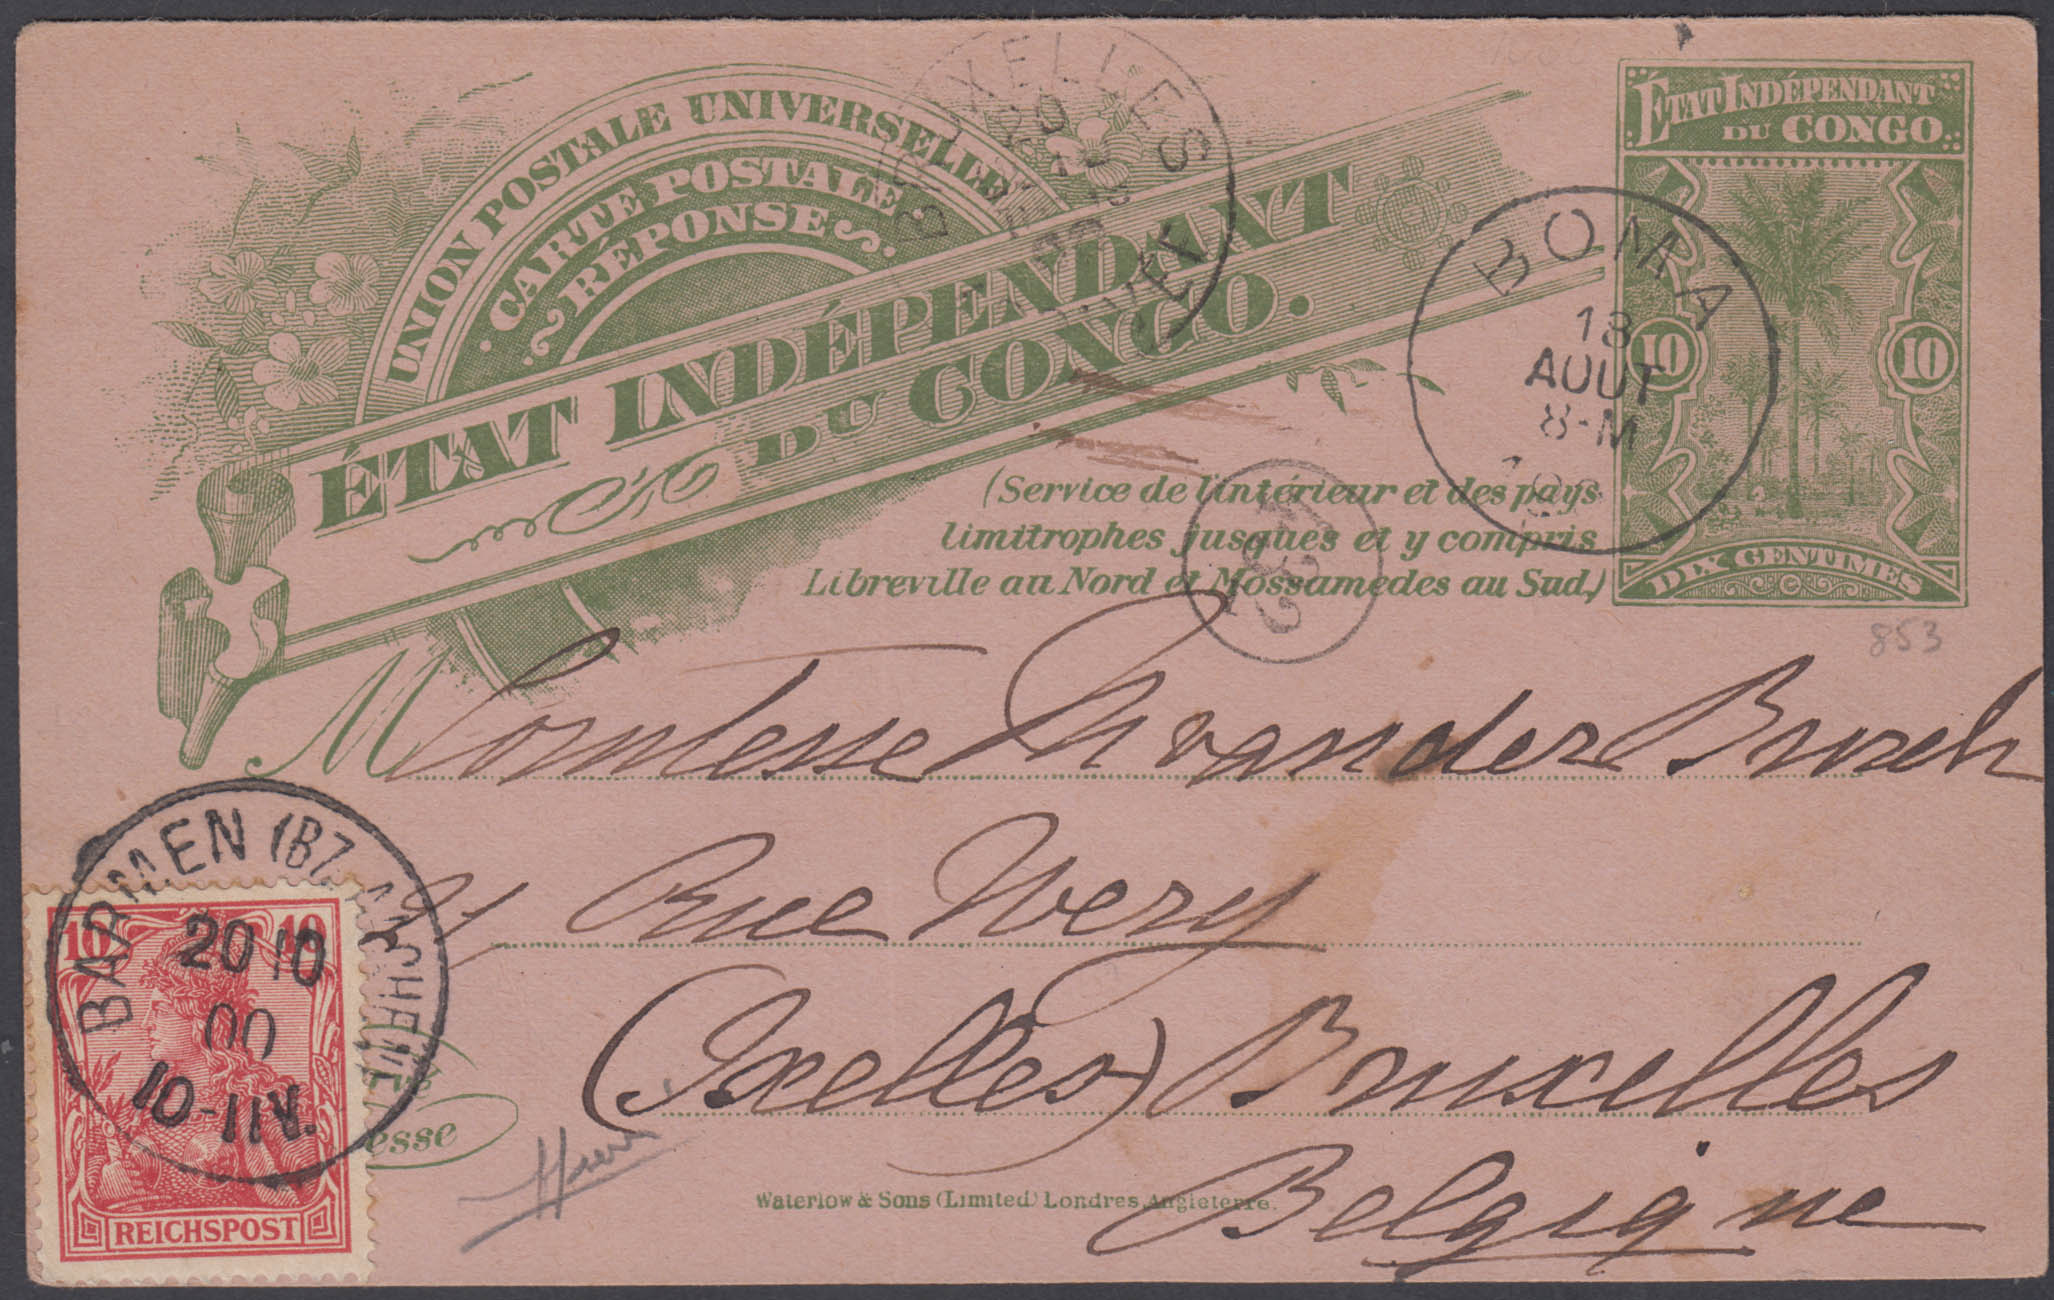 UNION POSTALE UNIVERSELLE
CARTE POSTALE
RÉPONSE
ÉTAT INDÉPENDANT
DU CONGO.
(Service de l'intérieur et des pays
limitrophes jusques et y compris
Libreville au Nord et Mossamedes au Sud.)
BRUXELLES
ÉTAT INDÉPENDANT
DU CONGO
10
10
DIX CENTIMES
BOMA
18
AOUT
8-M
853
M Comtesse Th vander Burch
Rue Wery
(Ixelles) Bruxelles
Belgique
BARMEN
20 10
00
10-11V.
10
REICHSPOST
esse
Waterlow & Sons (Limited) Londres, Angleterre.